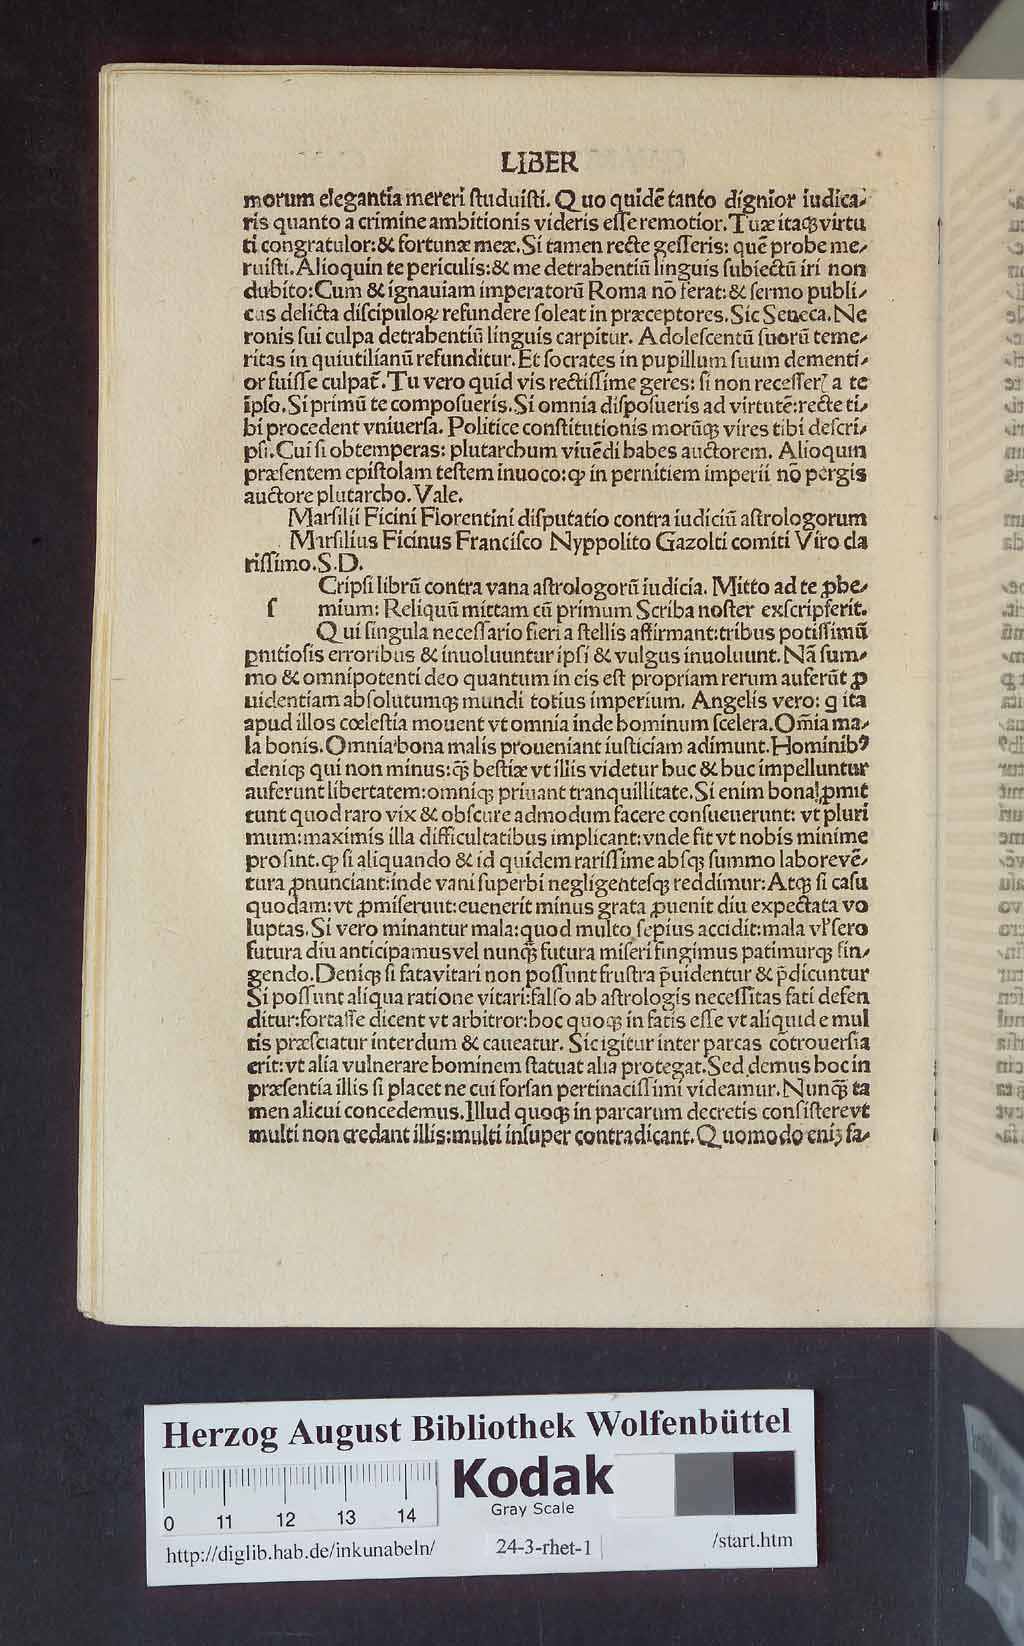 LIBER
morum elegantia mereri ſtuduiſti. Quo quidē tanto dignior iudica⸗
ris quanto a crimine ambitionis videris eſſe remotior. Tuæ itaqꝫ virtu
ti congratulor: & fortunæ meæ. Si tamen recte geſſeris: quē probe me⸗
ruiſti. Alioquin te periculis: & me detrahentiū linguis ſubiectū iri non
dubito: Cum & ignauiam imperatorū Roma nō ferat: & ſermo publi⸗
cus delicta diſcipuloꝝ refundere ſoleat in præceptores. Sic Seneca. Ne
ronis ſui culpa detrahentiū linguis carpitur. Adoleſcentū ſuorū teme⸗
ritas in quiutilianū refunditur. Et ſocrates in pupillum ſuum dementi⸗
or fuiſſe culpat̄. Tu vero quid vis rectiſſime geres: ſi non receſſerꝭ a te
ipſo. Si primū te compoſueris. Si omnia diſpoſueris ad virtutē: recte ti⸗
bi procedent vniuerſa. Politice conſtitutionis morūqꝫ vires tibi deſcri⸗
pſi. Cui ſi obtemperas: plutarchum viuēdi habes auctorem. Alioquin
præſentem epiſtolam teſtem inuoco: ꝙ in pernitiem imperii nō pergis
auctore plutarcho. Vale.
Marſilii Ficini Florentini diſputatio contra iudiciū aſtrologorum
Marſilius Ficinus Franciſco Nyppolito Gazolti comiti Viro cla
riſſimo. S. D.
Cripſi librū contra vana aſtrologorū iudicia. Mitto ad te ꝓhe⸗
ſ mium: Reliquū mittam cū primum Scriba noſter exſcripſerit.
Qui ſingula neceſſario fieri a ſtellis affirmant: tribus potiſſimū
ꝑnitioſis erroribus & inuoluuntur ipſi & vulgus inuoluunt. Nā ſum⸗
mo & omnipotenti deo quantum in eis eſt propriam rerum auferūt ꝓ
uidentiam abſolutumqꝫ mundi totius imperium. Angelis vero: q ita
apud illos cœleſtia mouent vt omnia inde hominum ſcelera. Om̄ia ma⸗
la bonis. Omnia bona malis proueniant iuſticiam adimunt. Hominibꝰ
deniqꝫ qui non minus: qꝫ̄ beſtiæ vt illis videtur huc & huc impelluntur
auferunt libertatem: omniqꝫ priuant tranquillitate. Si enim bona ꝓmit
tunt quod raro vix & obſcure admodum facere conſueuerunt: vt pluri
mum: maximis illa difficultatibus implicant: vnde fit vt nobis minime
proſint. ꝙ ſi aliquando & id quidem rariſſime abſqꝫ ſummo labore vē⸗
tura ꝓnunciant: inde vani ſuperbi negligenteſqꝫ reddimur: Atqꝫ ſi caſu
quodam: vt ꝓmiſerunt: euenerit minus grata ꝓuenit diu expectata vo
luptas. Si vero minantur mala: quod multo ſepius accidit: mala vl' ſero
futura diu anticipamus vel nunqꝫ̄ futura miſeri fingimus patimurqꝫ fin⸗
gendo. Deniqꝫ ſi fata vitari non poſſunt fruſtra p̄uidentur & p̄dicuntur
Si poſſunt aliqua ratione vitari: falſo ab aſtrologis neceſſitas fati defen
ditur: fortaſſe dicent vt arbitror: hoc quoqꝫ in fatis eſſe vt aliquid e mul
tis præſciatur interdum & caueatur. Sic igitur inter parcas cōtrouerſia
erit: vt alia vulnerare hominem ſtatuat alia protegat. Sed demus hoc in
præſentia illis ſi placet ne cui forſan pertinaciſſimi videamur. Nunqꝫ̄ ta
men alicui concedemus. Illud quoqꝫ in parcarum decretis conſiſtere vt
multi non credant illis: multi inſuper contradicant. Quomodo eniꝫ fa⸗
Herzog August Bibliothek Wolfenbüttel
Kodak
Gray Scale
0 11 12 13 14
http://diglib.hab.de/inkunabeln/ 24-3-rhet-1 /start.htm